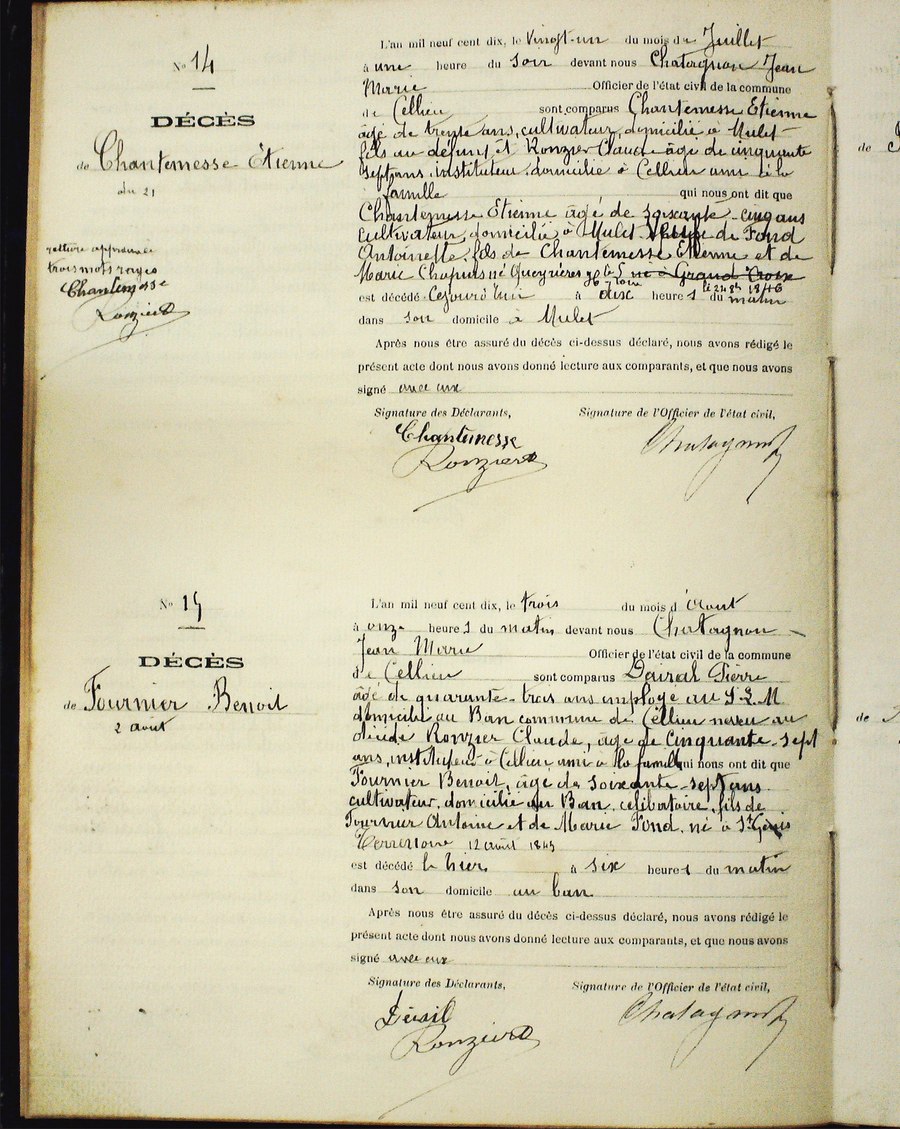 N° 14
DÉCÈS
de Chantemesse Etienne
du 21
trois mots rayés
Chantemesse
Ronzier
L'an mil neuf cent dix, le vingt-un du mois de Juillet
à une heure du soir devant nous Chatagnon Jean
Marie Officier de l'état civil de la commune
de Cellieu sont comparus Chantemesse Etienne
âgé de trente ans, cultivateur, domicilié à Mulet
fils au défunt et Ronzier Claude âgé de cinquante
sept ans, instituteur domicilié à Cellieu ami de la
famille qui nous ont dit que
Chantemesse Etienne âgé de soixante-cinq ans
cultivateur, domicilié à Mulet de Fond
Antoinette, fils de Chantemesse Etienne et de
Marie Chapuis né né à Grand Croix
1846
est décédé Cejourd'hui à dix heures du matin
dans son domicile à Mulet
Après nous être assuré du décès ci-dessus déclaré, nous avons rédigé le
présent acte dont nous avons donné lecture aux comparants, et que nous avons
signé avec eux
Signature des Déclarants, Signature de l'Officier de l'état civil,
Chantemesse
Ronzier
Chatagnon
N° 15
DÉCÈS
de Fournier Benoit
2 août
L'an mil neuf cent dix, le trois du mois d'Aout
à onze heures du matin devant nous Chatagnon
Jean Marie Officier de l'état civil de la commune
de Cellieu sont comparus Pierre
âgé de quarante-trois ans employé au P.L.M
domicilié au Ban commune de Cellieu neveu au
Ronzier Claude, âgé de cinquante-sept
ans, instituteur à Cellieu ami à la famille qui nous ont dit que
Fournier Benoit, âgé de soixante-sept ans
cultivateur, domicilié au Ban, célibataire, fils de
Fournier Antoine et de Marie Fond, né à St Genis
Terrenoire 12 août
est décédé le hier à six heures du matin
dans son domicile au ban
Après nous être assuré du décès ci-dessus déclaré, nous avons rédigé le
présent acte dont nous avons donné lecture aux comparants, et que nous avons
signé avec eux
Signature des Déclarants, Signature de l'Officier de l'état civil,
Ronzier
Chatagnon
de
de